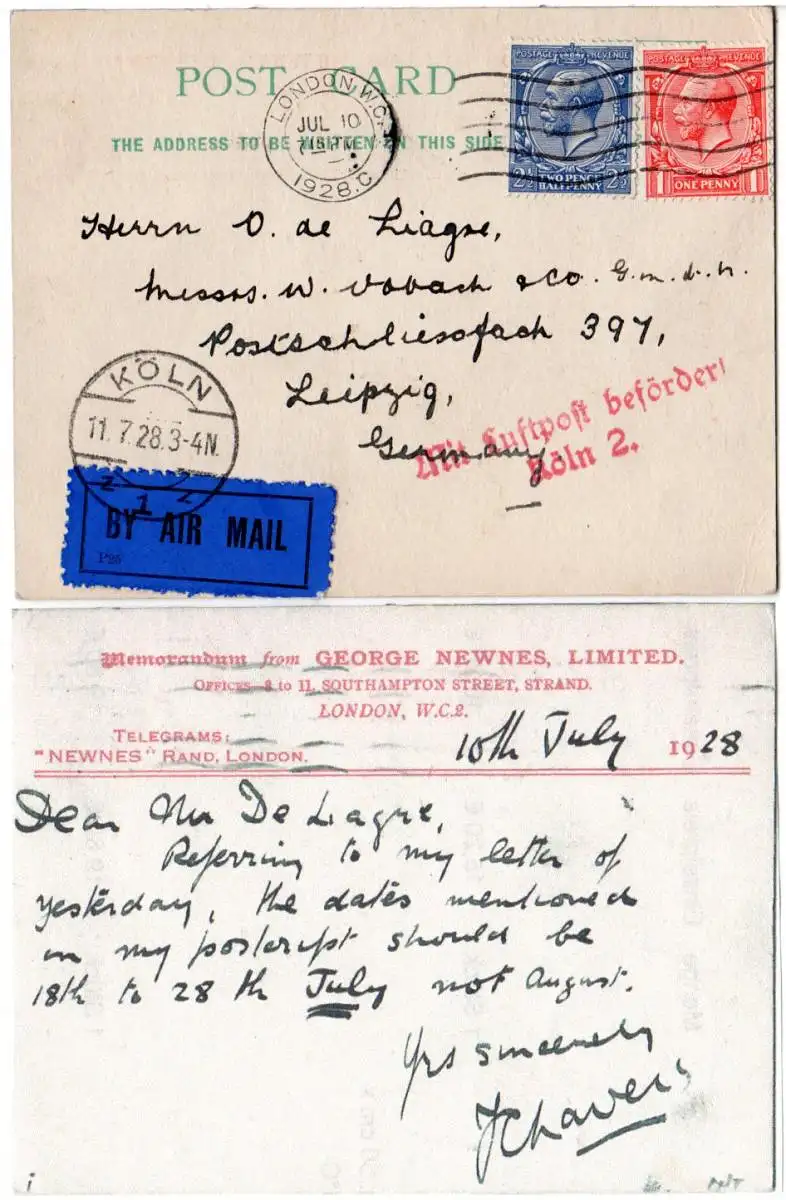 POST CARD
THE ADDRESS TO BE WRITTEN ON THIS SIDE
LONDON, W.C.
JUL 10
1928. C
POSTAGE REVENUE
2½ TWO PENCE HALFPENNY 2½
POSTAGE REVENUE
1 ONE PENNY 1
Herrn O. de Liagre,
Messrs. W. Vobach & Co. G.m.b.h.
Postschliessfach 397,
Leipzig,
Germany.
Mit Luftpost befördert
Köln 2.
KÖLN
11.7.28.3-4N.
2 1 2
BY AIR MAIL
P25
Memorandum from GEORGE NEWNES, LIMITED.
OFFICES 8 to 11, SOUTHAMPTON STREET, STRAND.
LONDON, W.C.2.
TELEGRAMS:
"NEWNES" RAND, LONDON.
10th July 1928
Dear Mr De Liagre,
Referring to my letter of
yesterday, the dates mentioned
in my postcript should be
18th to 28th July not August.
Yrs sincerely
i